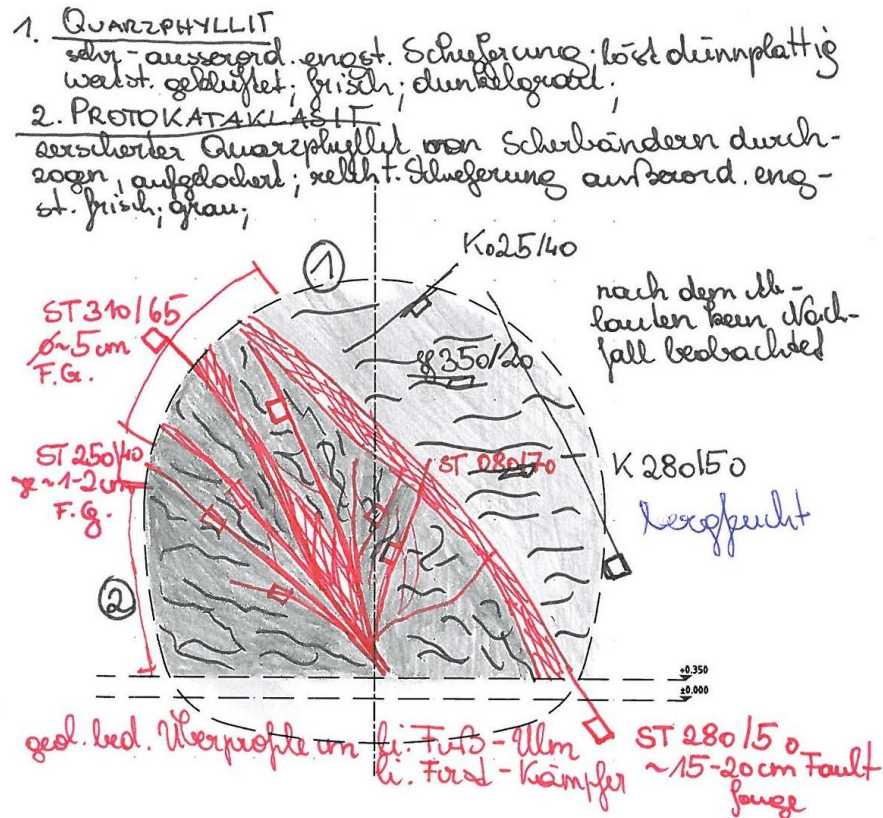 1. QUARZPHYLLIT
sehr - ausserord. engst. Schieferung; löst dünnplattig
weitst. geklüftet; frisch; dunkelgrau;
2. PROTOKATAKLASIT
zerscherter Quarzphyllit von Scherbändern durch-
zogen, aufgelockert; relikt. Schieferung außerord. eng-
st. frisch; grau;
1
K025/40
ST 310/65
ø~5cm
F.G.
nach dem Ab-
lauten kein Nach-
fall beobachtet
sf 350/20
ST 250/40
ø ~1-2cm
F.G.
ST 080/70
K 280/50
bergfeucht
2
+0.350
±0.000
geol. bed. Überprofile im li. Fuß - Ulm
li. First - Kämpfer
ST 280/50
~15-20cm Fault
gouge